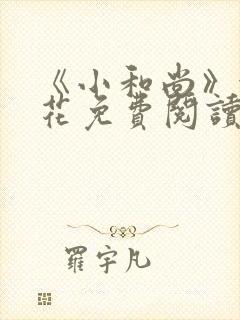 《小和尚》
花免費閱讀
羅宇凡